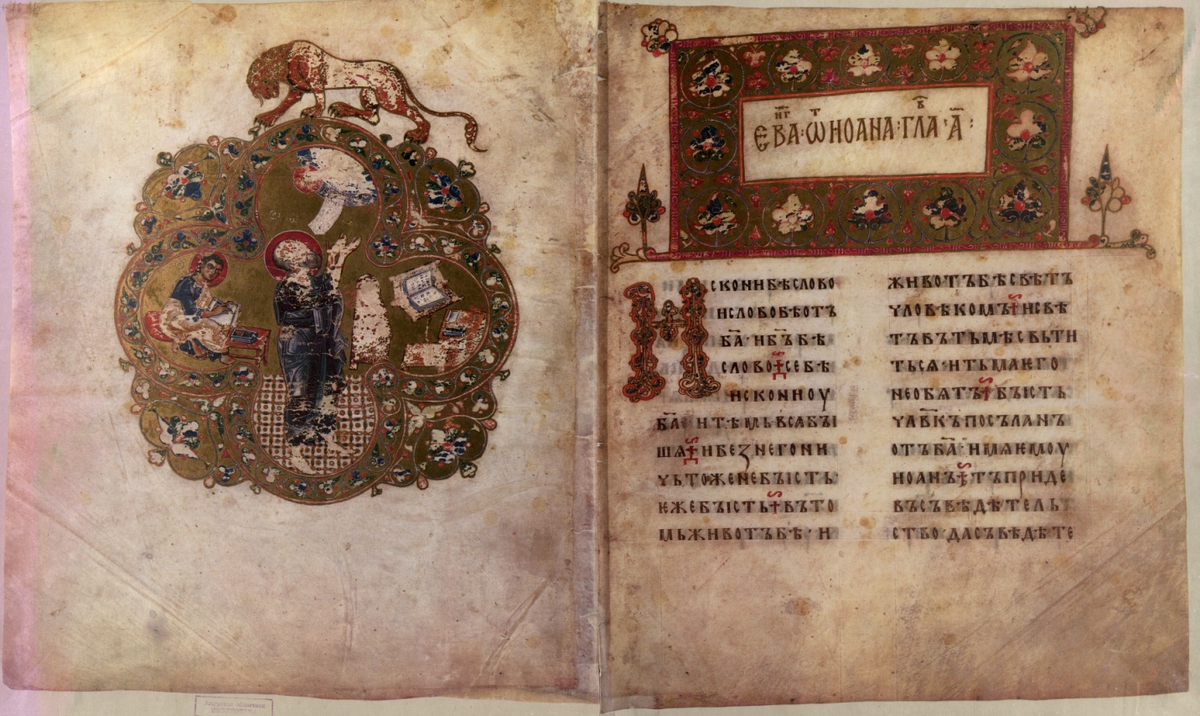 ЕВАⷩ҇ⷢ · ѿИОАНА · ГЛАⷡ · А҃ :
ИСКОНИБѢСЛОВО
ИСЛОВОБѢОТЪ
Б҃А·ИБ҃ЪБѢ
СЛОВО СЕБѢ
ИСКОНИОУ
Б҃А·ИТѢМЬВСАБЪІ
ШѦ ИБЕЗНЕГОНИ
ЧЬТОЖЕНЕБЪІСТЬ·
ѤЖЕБЪІСТЬ ВЪТО
МЬЖИВОТЪБѢ·И
ЖИВОТЪБѢСВѢТЪ
ЧЛОВѢКОМЪ ИСВѢ
ТЪВЪТЬМѢСВЬТИ
ТЬСѦ·ИТЬМАѤГО
НЕОБѦТЪ БЪІСТЬ
ЧЛ҃ВКЪПОСЪЛАНЪ
ОТЪБ҃А·ИМѦѤМОУ
ИОАНЪ ТЪПРИДЕ
ВЪСЪВѢДѢТЕЛЬ
СТВО·ДАСЪВѢДѢТЕ